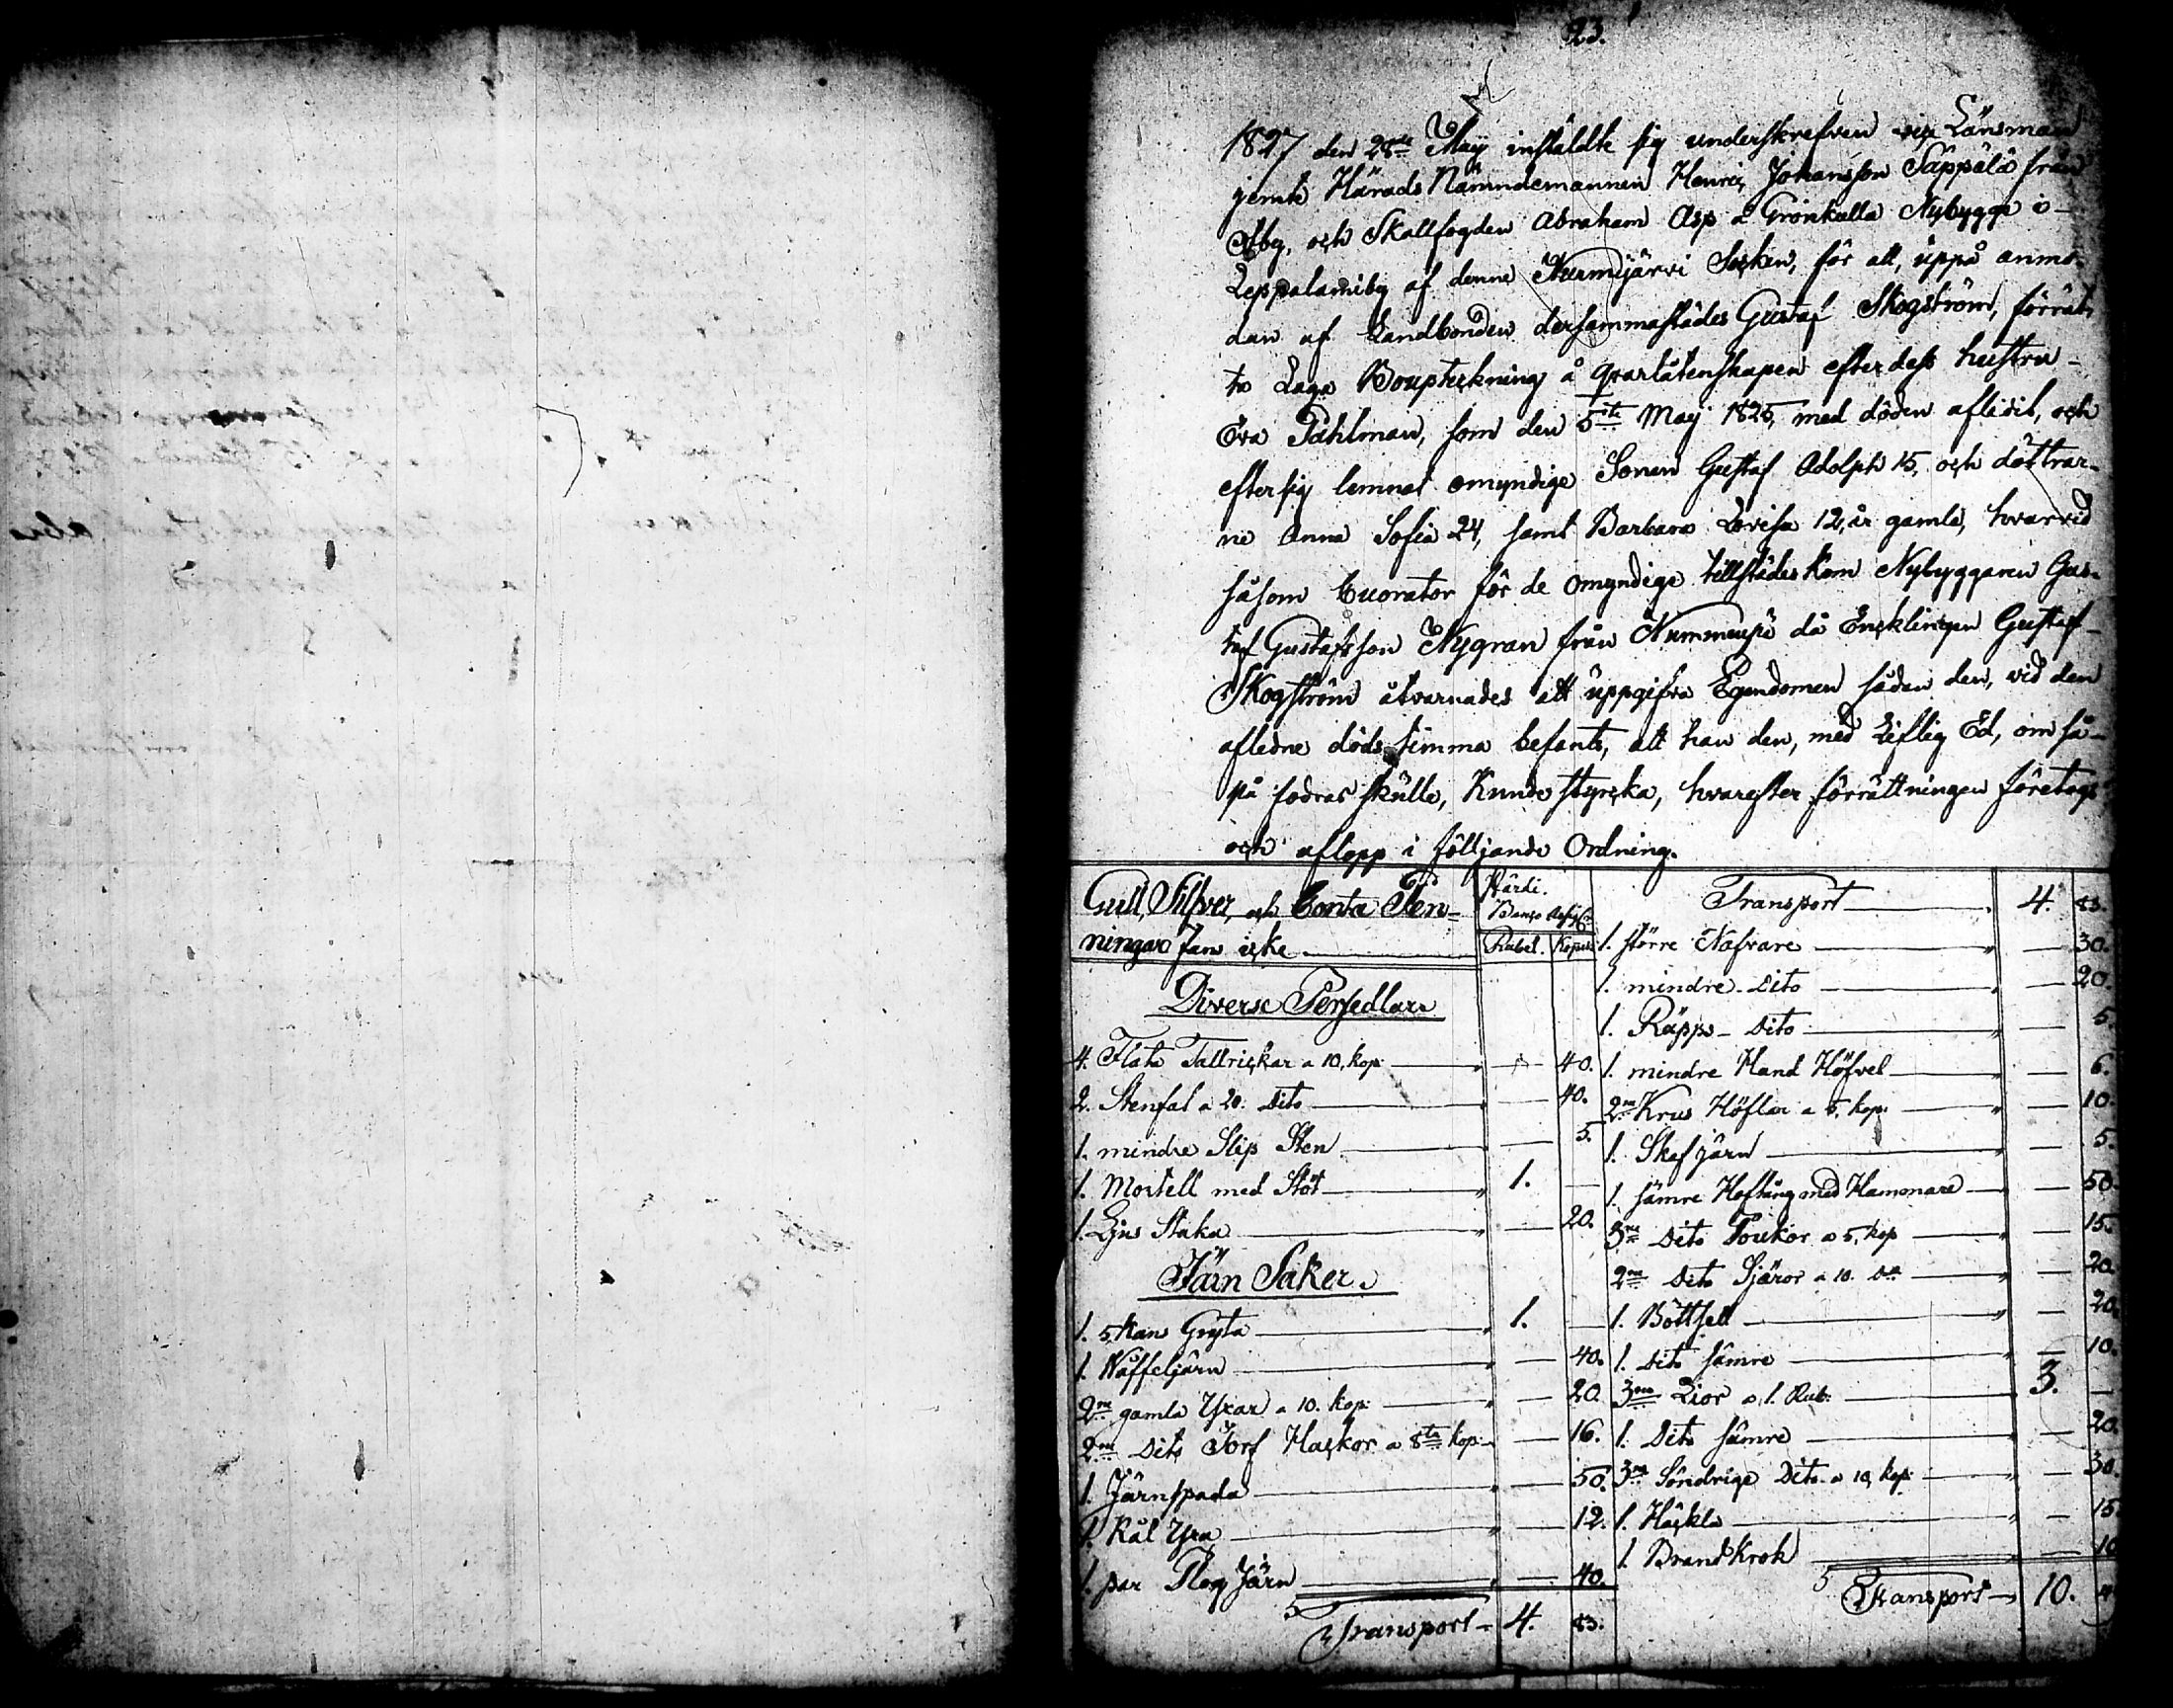 23.
1827 den 28de Maij instäldte sig underskrefven vice Länsman
jemte Härads Nämndemannen Henric Johansson Säppälä från
by, och Skallfogden Abraham Asp å Grönkulla Nybygge i
Leppälamby af denne Nurmijärvi Socken, för att, uppå anmo-
dan af Landbonden dersammastädes Gustaf Skogström, förrät-
ta Laga Boupteckning å qvarlåtenskapen efter dess hustru
Eva Påhlman, som den 5te Maij 1825, med döden aflidit, och
efter sig lemnat omyndige Sonen Gustaf Adolph 15, och döttrar-
ne Anna Sofia 24, samt Barbara Lovisa 12, år gamla, hvarvid
såsom Curator för de omyndige tillstädes kom Nybyggaren Gus-
taf Gustafsson Nygran från då Encklingen Gustaf
Skogström åtvarnades att uppgifva Egendomen sådan den, vid den
aflidne dödstimma befants, att han den, med Liflig Ed, om så
på fodras skulle, Kunde styrcka, hvarefter förrättningen företogs
och aflopp i följande Ordning.
Gull, Silfver och Conta Pen-
ningar fans icke
Värdi.
Banco Assign.
Rubel. Kopek
Diverse Persedlar
4. Flata Tallrickar a 10, kop. 40.
2. Stenfat a 20. Dito 40.
1. mindre Slip Sten 5.
1. Mortell med Stöt 1.
1. Ljus Staka 20.
Järn Saker.
1. 5. Kans Gryta 1.
1. Waffeljärn 40.
2ne gamla Yxar a 10. kop. 20.
2ne Dito Torf Hackor a 8ta kop. 16.
1. Järnspada 50.
1. Kål Yxa 12.
1. par Plog Järn 40.
Transport 4. 83.
Transport 4. 83.
1. större Nafvare 30.
1. mindre Dito 20.
1. Räpps Dito 5.
1. mindre Hand Höfvel 6.
2ne Krus Höflar a 5. kop. 10.
1. Skaf järn 5.
1. sämre Hoftång med Hammare 50.
3ne Dito a 5, kop 15.
2ne Dito Sjäror a 10. Do 20.
1. 20.
1. Dito sämre 10.
3ne Lior a 1. Rub. 3.
1. Dito sämre 20.
3ne Söndrige Dito a 10, kop. 30.
1. Häckla 15.
1. Brand Krok 10
Transport 10.